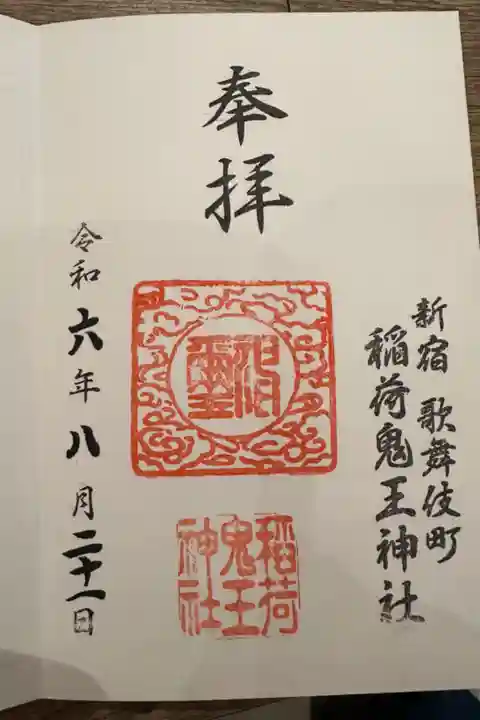 奉拝
新宿 歌舞伎町
稲荷鬼王神社
稲荷
鬼王
神社
令和六年八月二十一日